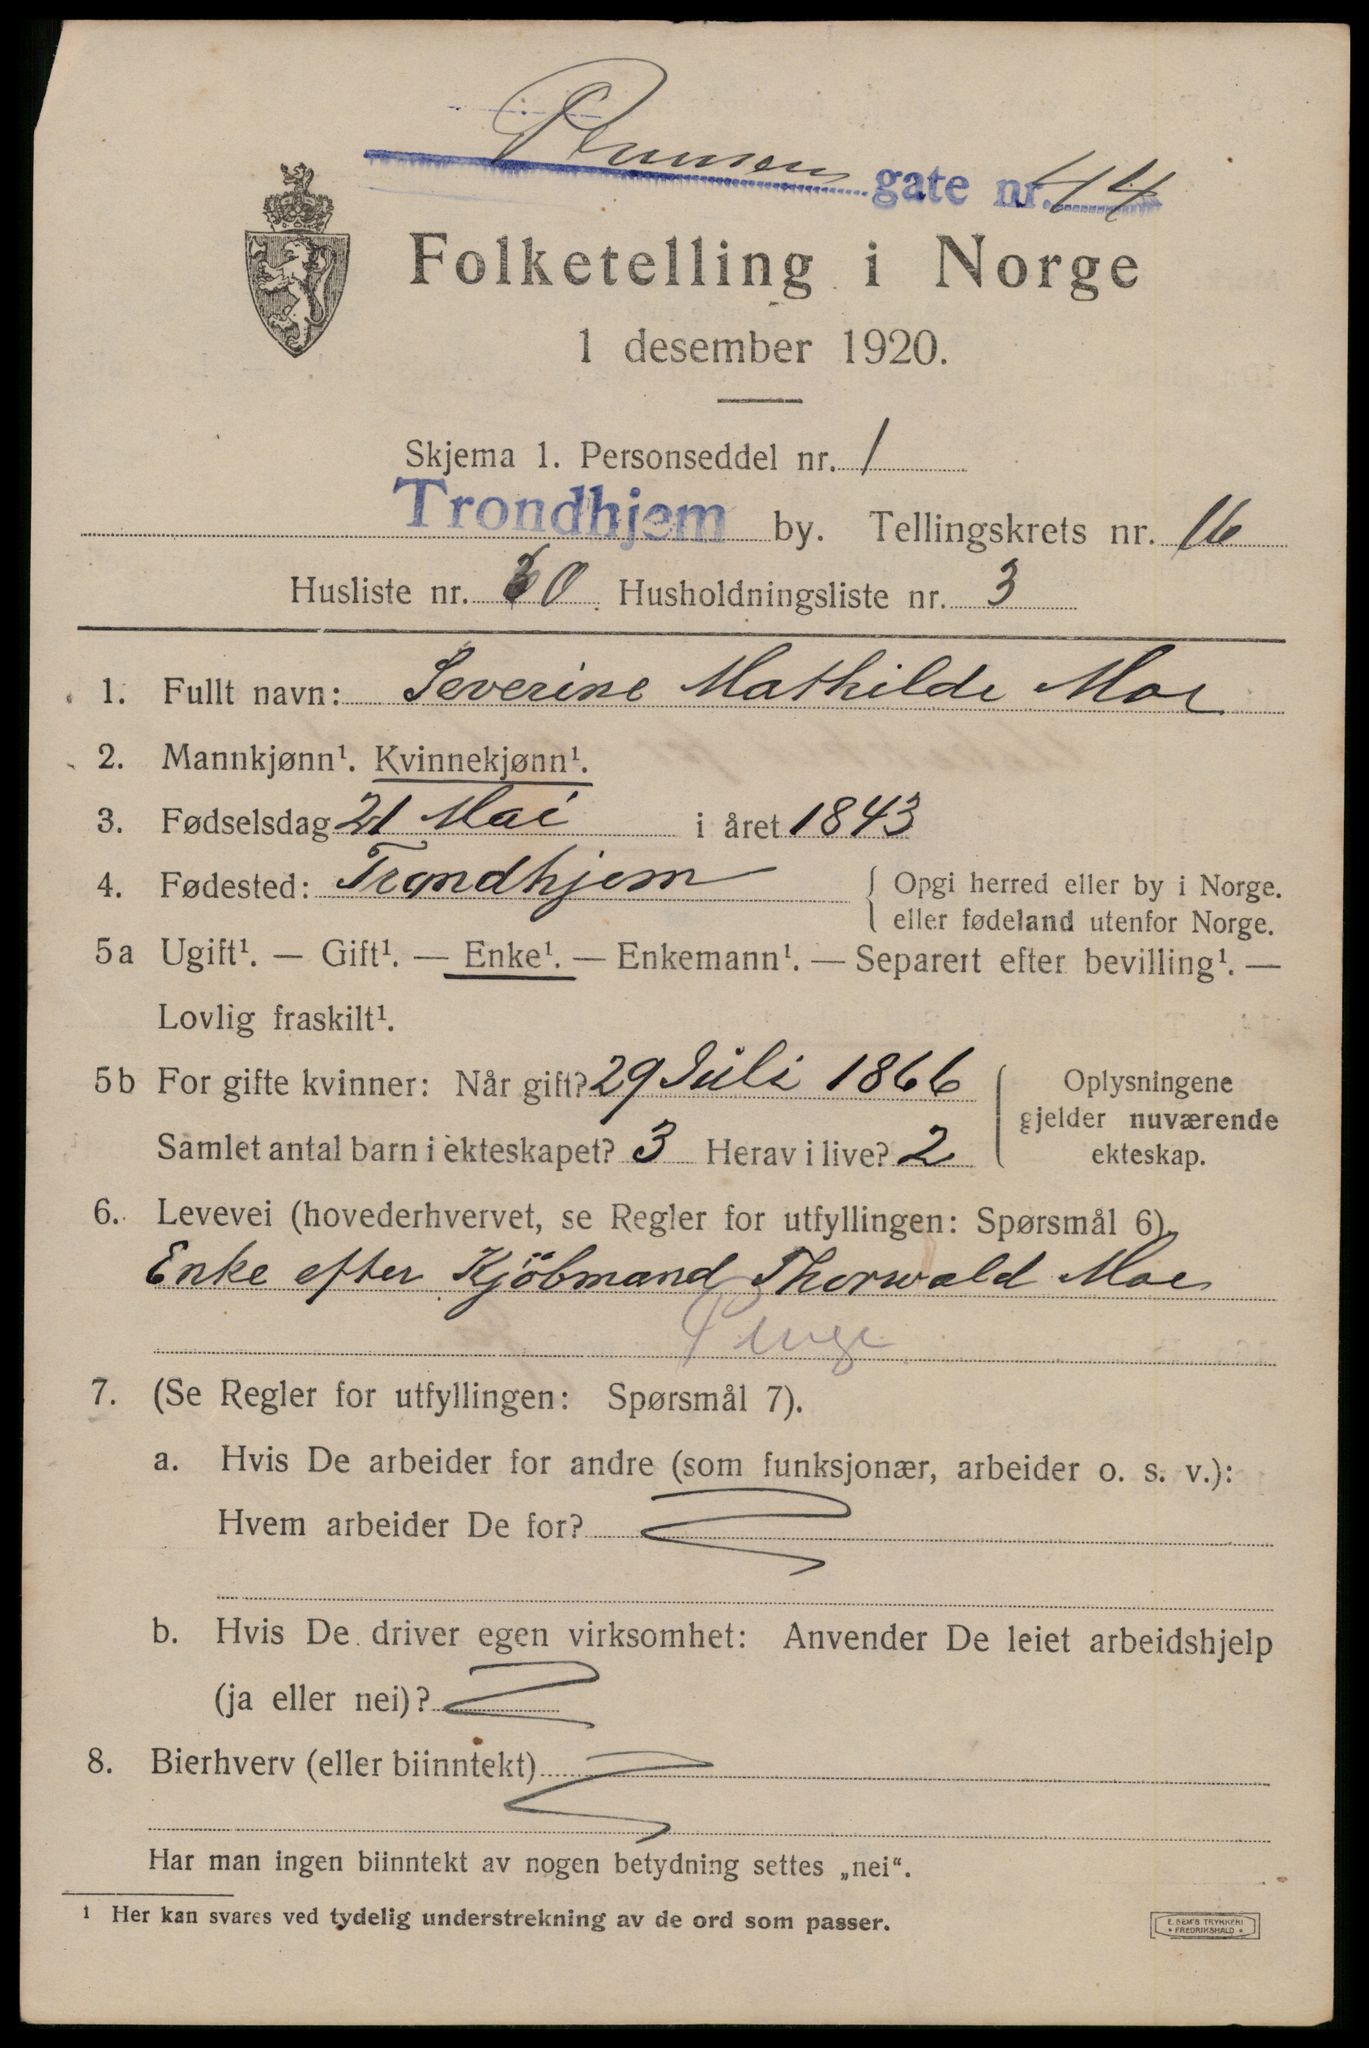 gate nr. 44
Folketelling i Norge
1 desember 1920.
Skjema 1. Personseddel nr. 1
Trondhjem by. Tellingskrets nr. 16
Husliste nr. 30 Husholdningsliste nr. 3
1. Fullt navn: Severine Mathilde Moe
2. Mannkjønn¹. Kvinnekjønn¹.
3. Fødselsdag 21 Mai i året 1843
4. Fødested: Trondhjem { Opgi herred eller by i Norge.
eller fødeland utenfor Norge.
5a Ugift¹. — Gift¹. — Enke¹. — Enkemann¹. — Separert efter bevilling¹. —
Lovlig fraskilt¹.
5b For gifte kvinner: Når gift? 29 Juli 1866 Oplysningene
gjelder nuværende
Samlet antal barn i ekteskapet? 3 Herav i live? 2 ekteskap.
6. Levevei (hovederhvervet, se Regler for utfyllingen: Spørsmål 6).
Enke efter Kjöbmand Thorwald Moe
7. (Se Regler for utfyllingen: Spørsmål 7).
a. Hvis De arbeider for andre (som funksjonær, arbeider o. s. v.):
Hvem arbeider De for?
b. Hvis De driver egen virksomhet: Anvender De leiet arbeidshjelp
(ja eller nei)?
8. Bierhverv (eller biinntekt)
Har man ingen biinntekt av nogen betydning settes „nei“.
¹ Her kan svares ved tydelig understrekning av de ord som passer.
E. SEM'S TRYKKERI
• FREDRIKSHALD •